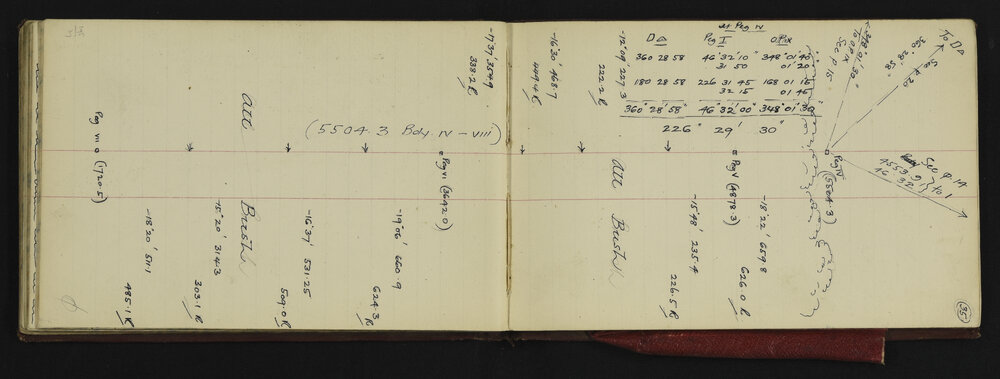 at Peg IV
D△ Peg I O.P.IX
360 28 58 46° 32' 10" 348° 01' 40"
31 50 01' 20
180 28 58 226 31 45 168 01 15
32 15 01 45
360° 28' 58" 46° 32' 00" 348° 01' 30"
226° 29' 30"
To D△
360° 28' 58"
See p 20
348° 01' 30"
To O.P.IX
See p 15
See p 14
4553.9 to 1
46° 32'
Peg IV
(5504.3)
-18° 22' 659.8
626.0 R
Peg V (4878.3)
-15° 48' 235.4
226.5 R
-12° 09' 227.3
222.2 R
All Bush
-16° 30' 468.7
449.4 R
-17° 37' 354.9
338.2 R
Peg VI (3642.0)
-19° 06' 660.9
624.3 R
(5504.3 Bdy. IV - VIII)
-16° 37' 531.25
509.0 R
All Bush
-15° 20' 314.3
303.1 R
-18° 20' 511.1
485.1 R
Peg VII (1720.5)
35